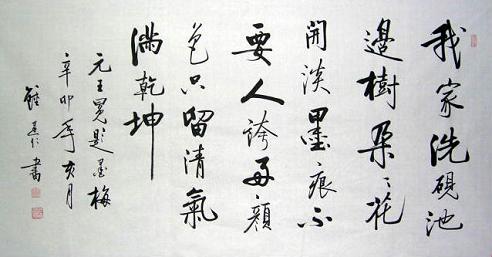 我家洗硯池
邊樹朵々花
開淡墨痕不
要人誇好顏
色只留清氣
滿乾坤
元王冕題墨梅
辛卯年亥月
仁書